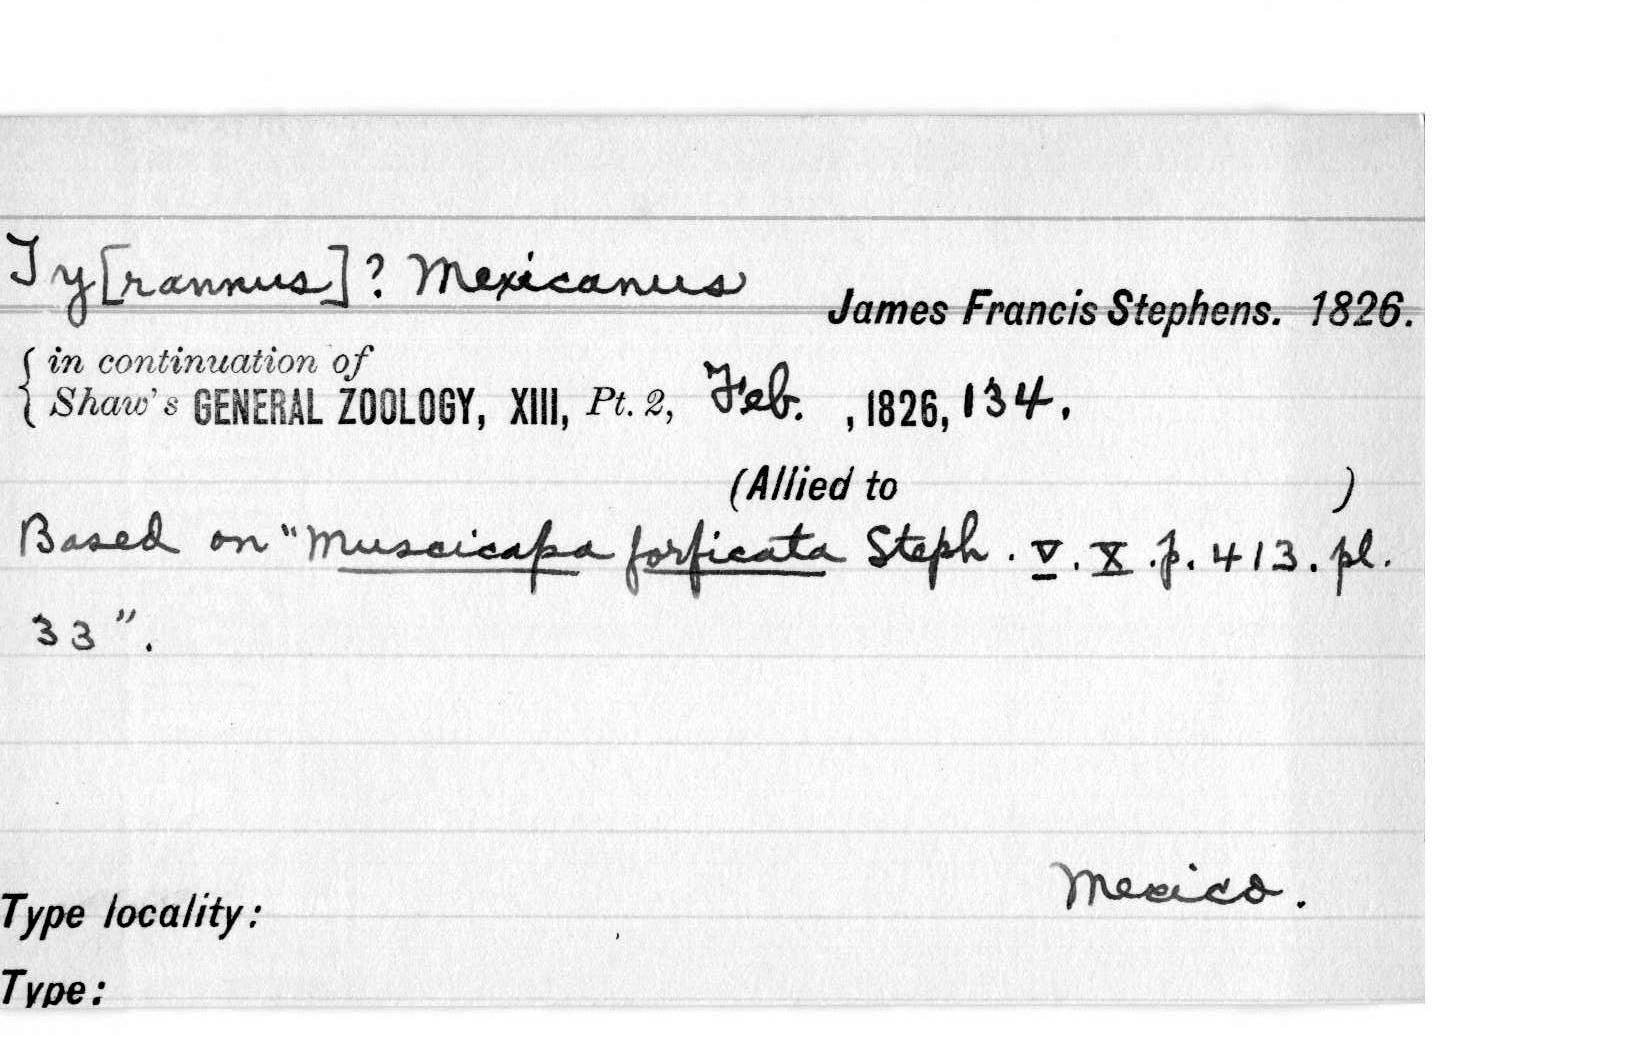 Ty[rannus]? Mexicanus
James Francis Stephens. 1826.
{ in continuation of
Shaw's GENERAL ZOOLOGY, XIII, Pt. 2, Feb. , 1826, 134.
(Allied to )
Based on "Muscicapa forficata Steph. V. X. p. 413. pl.
33".
Mexico.
Type locality:
Type: